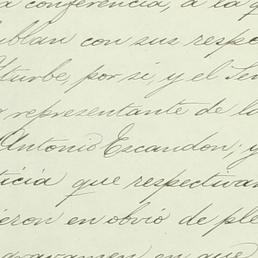 a conferencia, á la q
ablan con sus respe
Yturbe, por sí, y el Señ
representante de la
Antonio Escandon, y
ticia que respectivam
ieron en obvio de ple
gravamen en que